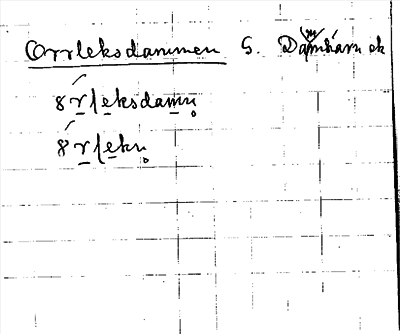 Orrleksdammen S. Dammkärn ok
8́r̲/e̲ksdam̲n̥
8́r̲/e̲kn̥